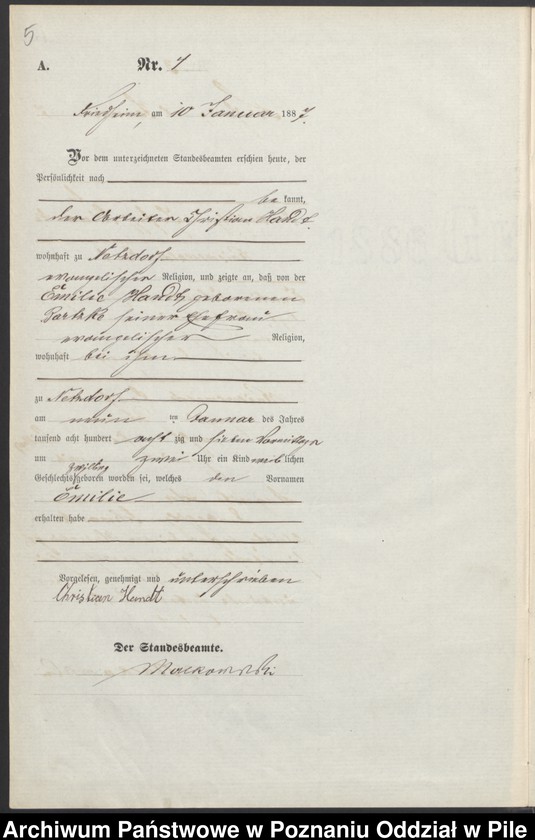 5
A. Nr. 7
Friedheim, am 10 Januar 1887.
Vor dem unterzeichneten Standesbeamten erschien heute, der
Persönlichkeit nach
be kannt,
der Arbeiter Christian Handt
wohnhaft zu Netzdorf
evangelischer Religion, und zeigte an, daß von der
Emilie Handt geborenen
seiner Ehefrau
evangelischer Religion,
wohnhaft bei ihm
zu Netzdorf
am neun ten Januar des Jahres
tausend acht hundert acht zig und sieben Vormittags
um zwei Uhr ein Kind weiblichen
Zwilling
Geschlechts geboren worden sei, welches den Vornamen
Emilie
erhalten habe
Vorgelesen, genehmigt und unterschrieben
Christian Handt
Der Standesbeamte.
Malkowski
Archiwum Państwowe w Poznaniu Oddział w Pile